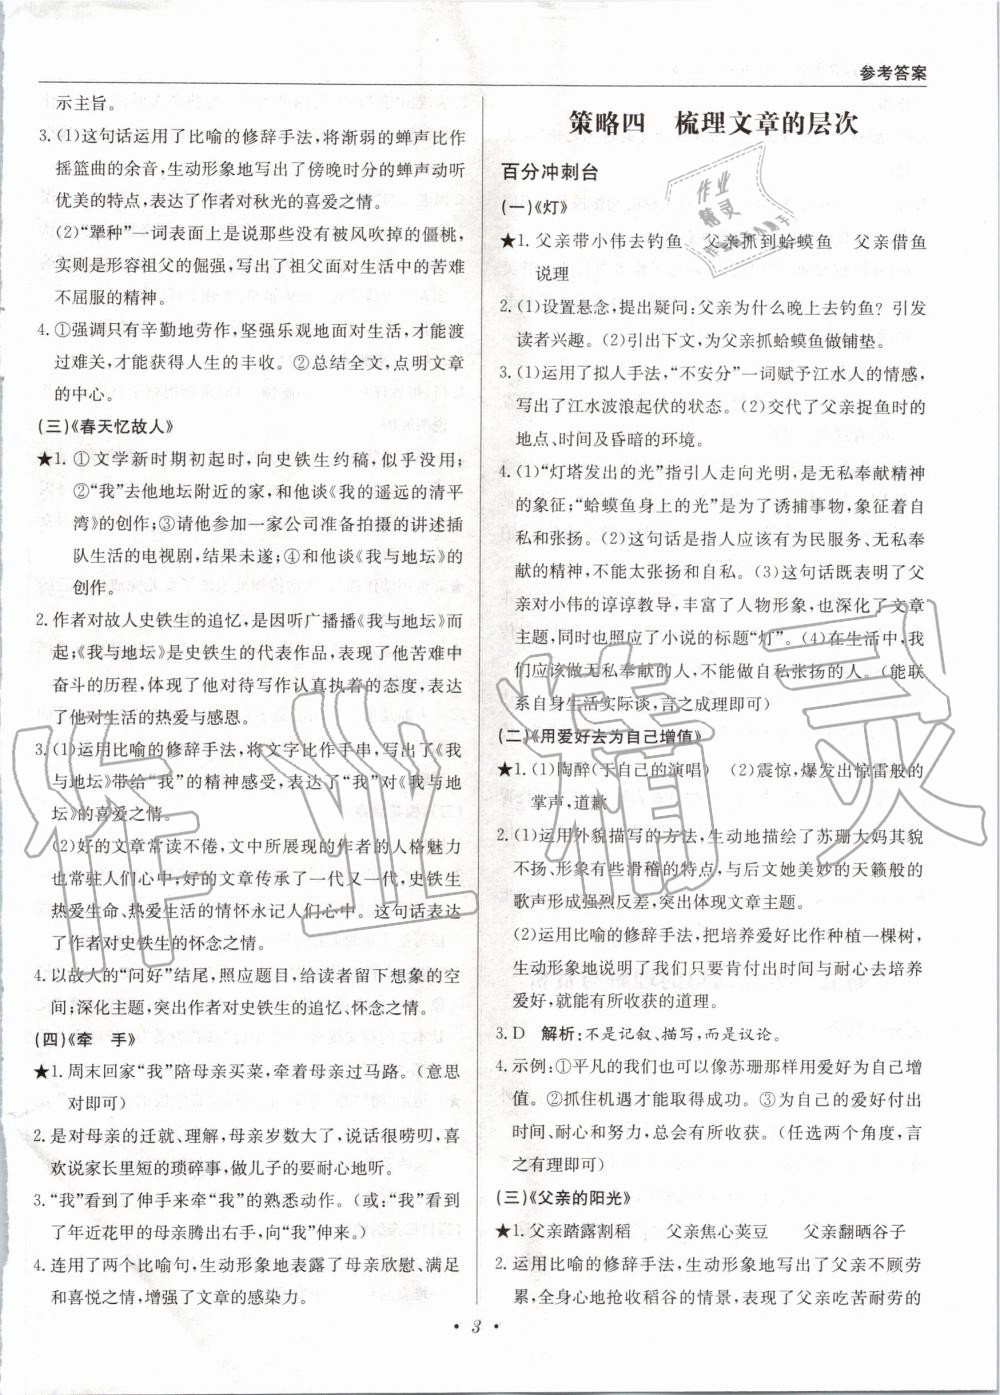 参考答案
示主旨。
3. (1)这句话运用了比喻的修辞手法，将渐弱的蝉声比作
摇篮曲的余音，生动形象地写出了傍晚时分的蝉声动听
优美的特点，表达了作者对秋光的喜爱之情。
(2)“犟种”一词表面上是说那些没有被风吹掉的僵桃，
实则是形容祖父的倔强，写出了祖父面对生活中的苦难
不屈服的精神。
4. ①强调只有辛勤地劳作，坚强乐观地面对生活，才能渡
过难关，才能获得人生的丰收。②总结全文，点明文章
的中心。
(三)《春天忆故人》
★1. ①文学新时期初起时，向史铁生约稿，似乎没用；
②“我”去他地坛附近的家，和他谈《我的遥远的清平
湾》的创作；③请他参加一家公司准备拍摄的讲述插
队生活的电视剧，结果未遂；④和他谈《我与地坛》的
创作。
2. 作者对故人史铁生的追忆，是因听广播播《我与地坛》而
起；《我与地坛》是史铁生的代表作品，表现了他在苦难中
奋斗的历程，体现了他对待写作认真执着的态度，表达
了他对生活的热爱与感恩。
3. (1)运用比喻的修辞手法，将文字比作手串，写出了《我
与地坛》带给“我”的精神感受，表达了“我”对《我与地
坛》的喜爱之情。
(2)好的文章常读不倦，文中所展现的作者的人格魅力
也常驻人们心中；好的文章传承了一代又一代，史铁生
热爱生命、热爱生活的情怀永记人们心中。这句话表达
了作者对史铁生的怀念之情。
4. 以故人的“问好”结尾，照应题目，给读者留下想象的空
间；深化主题，突出作者对史铁生的追忆、怀念之情。
(四)《牵　手》
★1. 周末回家“我”陪母亲买菜，牵着母亲过马路。（意思
对即可）
2. 是对母亲的迁就、理解，母亲岁数大了，说话很唠叨，喜
欢说家长里短的琐碎事，做儿子的要耐心地听。
3. “我”看到了伸手来牵“我”的熟悉动作。（或：“我”看到
了年近花甲的母亲腾出右手，向“我”伸来。）
4. 连用了两个比喻句，生动形象地表露了母亲欣慰、满足
和喜悦之情，增强了文章的感染力。
策略四　梳理文章的层次
百分冲刺台
(一)《灯》
★1. 父亲带小伟去钓鱼　父亲抓到蛤蟆鱼　父亲借鱼
说理
2. (1)设置悬念，提出疑问：父亲为什么晚上去钓鱼？引发
读者兴趣。(2)引出下文，为父亲抓蛤蟆鱼做铺垫。
3. (1)运用了拟人手法，“不安分”一词赋予江水人的情感，
写出了江水波浪起伏的状态。(2)交代了父亲捉鱼时的
地点、时间及昏暗的环境。
4. (1)“灯塔发出的光”指引人走向光明，是无私奉献精神
的象征；“蛤蟆鱼身上的光”是为了诱捕事物，象征着自
私和张扬。(2)这句话是指人应该有为民服务、无私奉
献的精神，不能太张扬和自私。(3)这句话既表明了父
亲对小伟的谆谆教导，丰富了人物形象，也深化了文章
主题，同时也照应了小说的标题“灯”。(4)在生活中，我
们应该做无私奉献的人，不能做自私张扬的人。（能联
系自身生活实际谈，言之成理即可）
(二)《用爱好去为自己增值》
★1. (1)陶醉(于自己的演唱)　(2)震惊，爆发出惊雷般的
掌声，道歉
2. (1)运用外貌描写的方法，生动地描绘了苏珊大妈其貌
不扬、形象有些滑稽的特点，与后文她美妙的天籁般的
歌声形成强烈反差，突出体现文章主题。
(2)运用比喻的修辞手法，把培养爱好比作种植一棵树，
生动形象地说明了我们只要肯付出时间与耐心去培养
爱好，就能有所收获的道理。
3. D　解析：不是记叙、描写，而是议论。
4. 示例：①平凡的我们也可以像苏珊那样用爱好为自己增
值。②抓住机遇才能取得成功。③为自己的爱好付出
时间、耐心和努力，总会有所收获。（任选两个角度，言
之有理即可）
(三)《父亲的阳光》
★1. 父亲踏露割稻　父亲焦心荚豆　父亲翻晒谷子
2. 运用比喻的修辞手法，生动形象地写出了父亲不顾劳
累，全身心地抢收稻谷的情景，表现了父亲吃苦耐劳的
• 3 •
作业精灵
作业
精灵